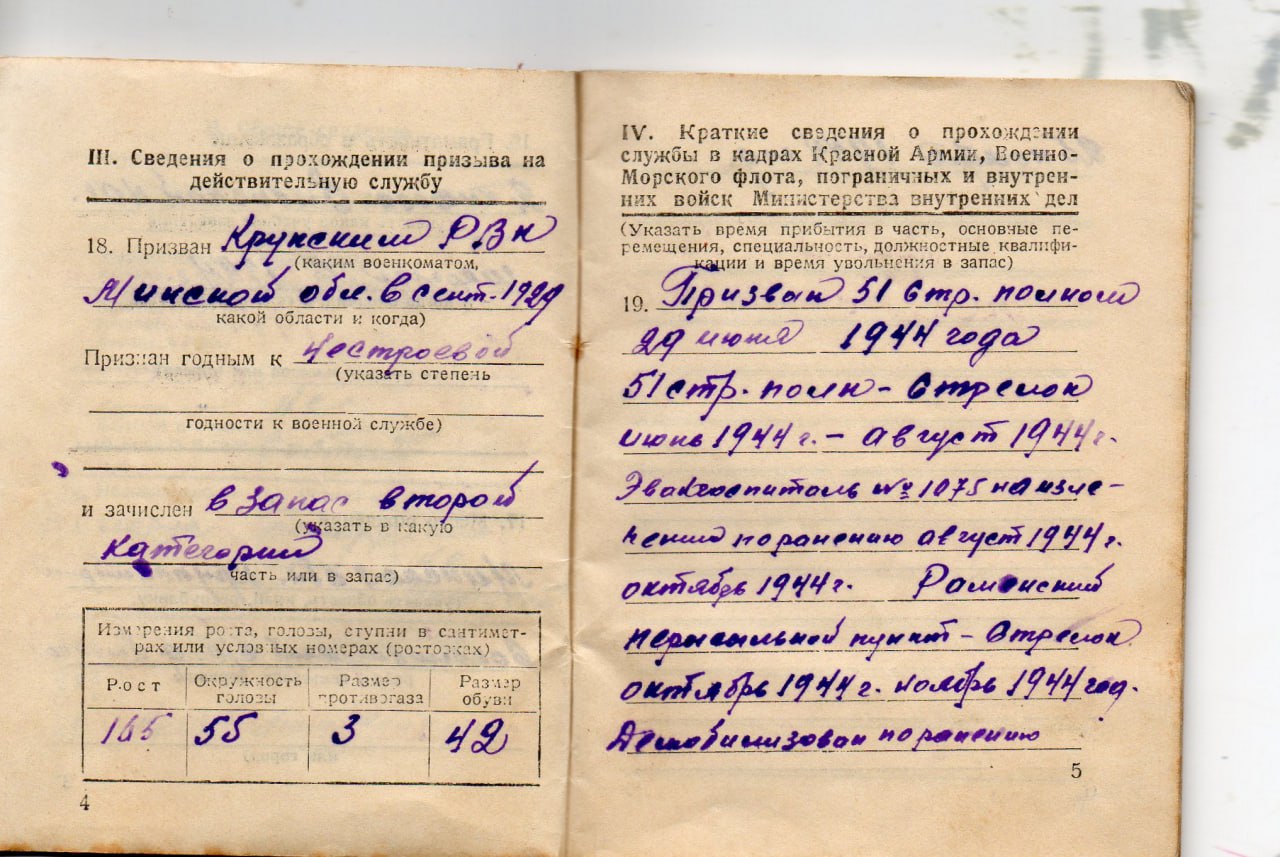 III. Сведения о прохождении призыва на
действительную службу
18. Призван Крупским РВК
(каким военкоматом,
Минской обл. в сент. 1929
какой области и когда)
Признан годным к нестроевой
(указать степень
годности к военной службе)
и зачислен в запас второй
(указать в какую
категории
часть или в запас)
Измерения роста, головы, ступни в сантимет-
рах или условных номерах (ростовках)
Рост Окружность головы Размер противогаза Размер обуви
165 55 3 42
4
IV. Краткие сведения о прохождении
службы в кадрах Красной Армии, Военно-
Морского флота, пограничных и внутрен-
них войск Министерства внутренних дел
(Указать время прибытия в часть, основные пе-
ремещения, специальность, должностные квалифи-
кации и время увольнения в запас)
19. Призван 51 стр. полком
29 июня 1944 года
51 стр. полк - Стрелок
июнь 1944 г. - август 1944 г.
Эвакгоспиталь № 1075 на изле-
чении по ранению август 1944 г.
октябрь 1944 г. Раменский
пересыльной пункт - Стрелок
октябрь 1944 г. ноябрь 1944 год.
Демобилизован по ранению
5